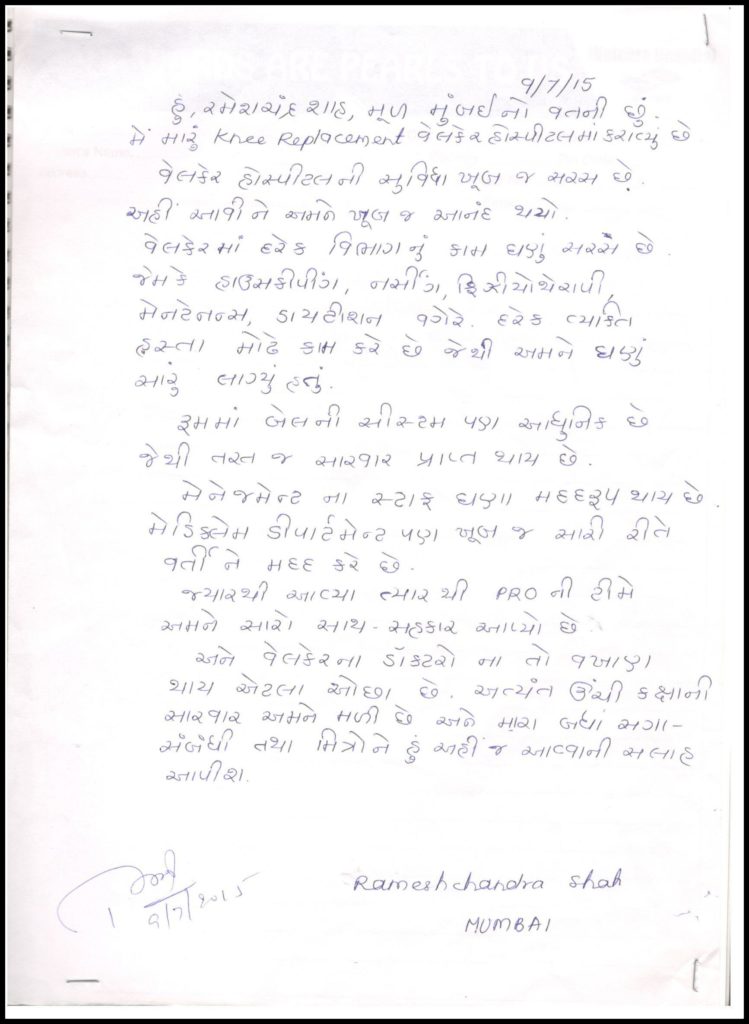 9/7/15
હું, રમેશચંદ્ર શાહ, મૂળ મુંબઈનો વતની છું.
મેં મારું Knee Replacement વેલકેર હોસ્પીટલમાં કરાવ્યું છે
વેલકેર હોસ્પીટલની સુવિધા ખૂબ જ સરસ છે.
અહીં આવીને અમને ખૂબ જ આનંદ થયો.
વેલકેરમાં દરેક વિભાગનું કામ ઘણું સરસ છે.
જેમકે હાઉસકીપીંગ, નર્સીંગ, ફિઝીયોથેરાપી,
મેનટેનન્સ, ડાયટીશન વગેરે. દરેક વ્યક્તિ
હસ્તા મોઢે કામ કરે છે જેથી અમને ઘણું
સારું લાગ્યું હતું.
રૂમમાં બેલની સીસ્ટમ પણ આધુનિક છે
જેથી તરત જ સારવાર પ્રાપ્ત થાય છે.
મેનેજમેન્ટ ના સ્ટાફ ઘણા મદદરૂપ થાય છે.
મેડિકલેમ ડીપાર્ટમેન્ટ પણ ખૂબ જ સારી રીતે
વર્તીને મદદ કરે છે.
જ્યારથી આવ્યા ત્યારથી PRO ની ટીમે
અમને સારો સાથ-સહકાર આપ્યો છે.
અને વેલકેરના ડૉકટરો ના તો વખાણ
થાય એટલા ઓછા છે. અત્યંત ઊંચી કક્ષાની
સારવાર અમને મળી છે અને મારા બધાં સગા-
સંબંધી તથા મિત્રોને હું અહીં જ આવવાની સલાહ
આપીશ.
Rameshchandra Shah
9/7/2015
MUMBAI